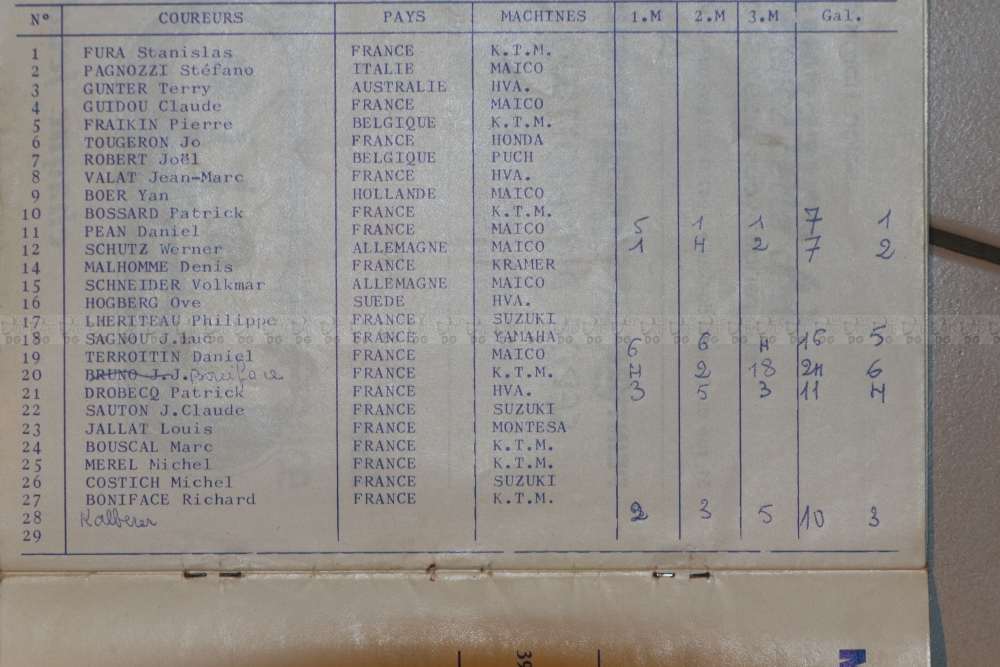 N° COUREURS PAYS MACHINES 1.M 2.M 3.M Gal.
1 FURA Stanislas FRANCE K.T.M.
2 PAGNOZZI Stéfano ITALIE MAICO
3 GUNTER Terry AUSTRALIE HVA.
4 GUIDOU Claude FRANCE MAICO
5 FRAIKIN Pierre BELGIQUE K.T.M.
6 TOUGERON Jo FRANCE HONDA
7 ROBERT Joël BELGIQUE PUCH
8 VALAT Jean-Marc FRANCE HVA.
9 BOER Yan HOLLANDE MAICO
10 BOSSARD Patrick FRANCE K.T.M.
11 PEAN Daniel FRANCE MAICO 5 1 1 7 1
12 SCHUTZ Werner ALLEMAGNE MAICO 1 4 2 7 2
14 MALHOMME Denis FRANCE KRAMER
15 SCHNEIDER Volkmar ALLEMAGNE MAICO
16 HOGBERG Ove SUEDE HVA.
17 LHERITEAU Philippe FRANCE SUZUKI
18 SAGNOU J.luc FRANCE YAMAHA
19 TERROITIN Daniel FRANCE MAICO 6 6 4 16 5
20 BRUNO J.J. Boniface FRANCE K.T.M. 4 2 18 24 6
21 DROBECQ Patrick FRANCE HVA. 3 5 3 11 4
22 SAUTON J.Claude FRANCE SUZUKI
23 JALLAT Louis FRANCE MONTESA
24 BOUSCAL Marc FRANCE K.T.M.
25 MEREL Michel FRANCE K.T.M.
26 COSTICH Michel FRANCE SUZUKI
27 BONIFACE Richard FRANCE K.T.M.
28 Kalberer 2 3 5 10 3
29
39